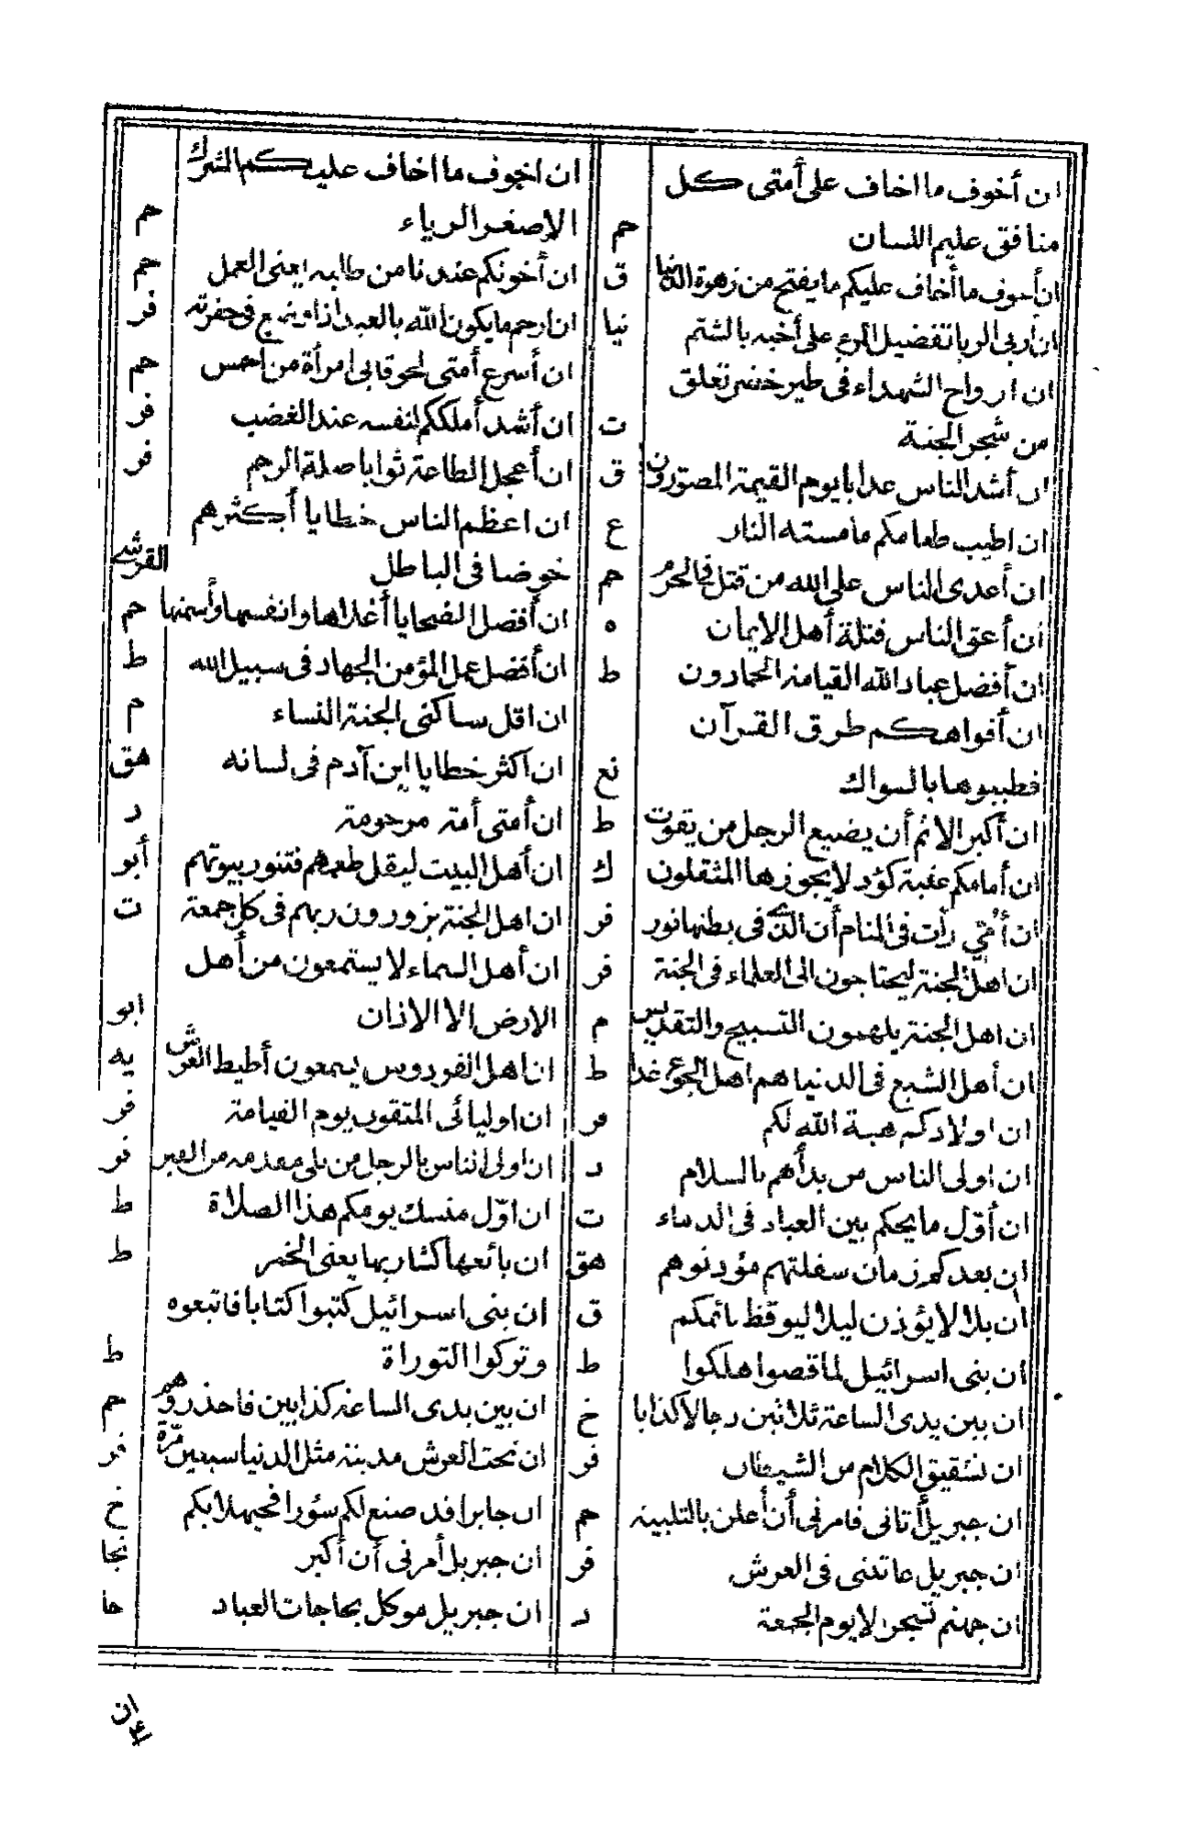 ان أخوف ما اخاف على أمتى كل
منافق عليم اللسان حم
ان أخوف ما أخاف عليكم ما يفتح من زهرة الدنيا ق
ان أربى الربا تفضيل المرء على أخيه بالشتم نيا
ان ارواح الشهداء فى طير خضر تعلق
من شجر الجنة ت
ان أشد الناس عذابا يوم القيمة المصورون ق
ان اطيب طعامكم ما مسته النار ع
ان أعدى الناس على الله من قتل فى الحرم حم
ان أعق الناس قتلة أهل الايمان ه
ان أفضل عباد الله القيامة الحمادون ط
ان أفواهكم طرق القرآن
فطيبوها بالسواك نع
ان أكبر الاثم أن يضيع الرجل من يقوت ط
ان أمامكم عقبة كؤد لا يجوزها المثقلون ك
ان أمى رأت فى المنام أن الذى فى بطنها نور فر
ان اهل الجنة ليحتاجون الى العلماء فى الجنة فر
ان اهل الجنة يلهمون التسبيح والتقديس م
ان أهل الشبع فى الدنيا هم اهل الجوع غدا ط
ان اولادكم هبة الله لكم فر
ان اولى الناس من بدأهم بالسلام د
ان أول ما يحكم بين العباد فى الدماء ت
ان بعدكم زمان سفلتهم مؤذنوهم هق
ان بلالا يؤذن ليلا ليوقظ نائمكم ق
ان بنى اسرائيل لما قصوا هلكوا ط
ان بين يدى الساعة ثلاثين دجالا كذابا خ
ان تشقيق الكلام من الشيطان فر
ان جبريل أتانى فامرنى أن أعلن بالتلبية حم
ان جبريل عاتبنى فى العرش فر
ان جهنم تسجر الا يوم الجمعة د
ان اخوف ما اخاف عليكم الشرك
الاصغر الرياء حم
ان أخونكم عندنا من طلبه يعنى العمل حم
ان ارحم ما يكون الله بالعبد اذا وضع فى حفرته فر
ان أسرع أمتى لحوقا بى امرأة من احمس حم
ان أشد أملككم لنفسه عند الغضب فر
ان أعجل الطاعة ثوابا صلة الرحم فر
ان اعظم الناس خطايا أكثرهم
خوضا فى الباطل القرشى
ان أفضل الضحايا أغلاها وانفسها وأسمنها حم
ان أفضل عمل المؤمن الجهاد فى سبيل الله ط
ان اقل ساكنى الجنة النساء م
ان اكثر خطايا ابن آدم فى لسانه هق
ان أمتى أمة مرحومة د
ان أهل البيت ليقل طعمهم فتنور بيوتهم أبو
ان اهل الجنة يزورون ربهم فى كل جمعة ت
ان أهل السماء لا يستمعون من أهل
الارض الا الاذان ابو
ان اهل الفردوس يسمعون أطيط العرش يه
ان اوليائى المتقون يوم القيامة فر
ان اولى الناس بالرجل من يلى مقدمه من القبر فر
ان اول منسك يومكم هذا الصلاة ط
ان بائعها كشاربها يعنى الخمر ط
ان بنى اسرائيل كتبوا كتابا فاتبعوه
وتركوا التوراة ط
ان بين يدى الساعة كذابين فاحذروهم حم
ان تحت العرش مدينة مثل الدنيا سبعين مرة فر
ان جابرا قد صنع لكم سؤرا فحيهلا بكم خ
ان جبريل أمرنى أن أكبر نجا
ان جبريل موكل بحاجات العباد حا